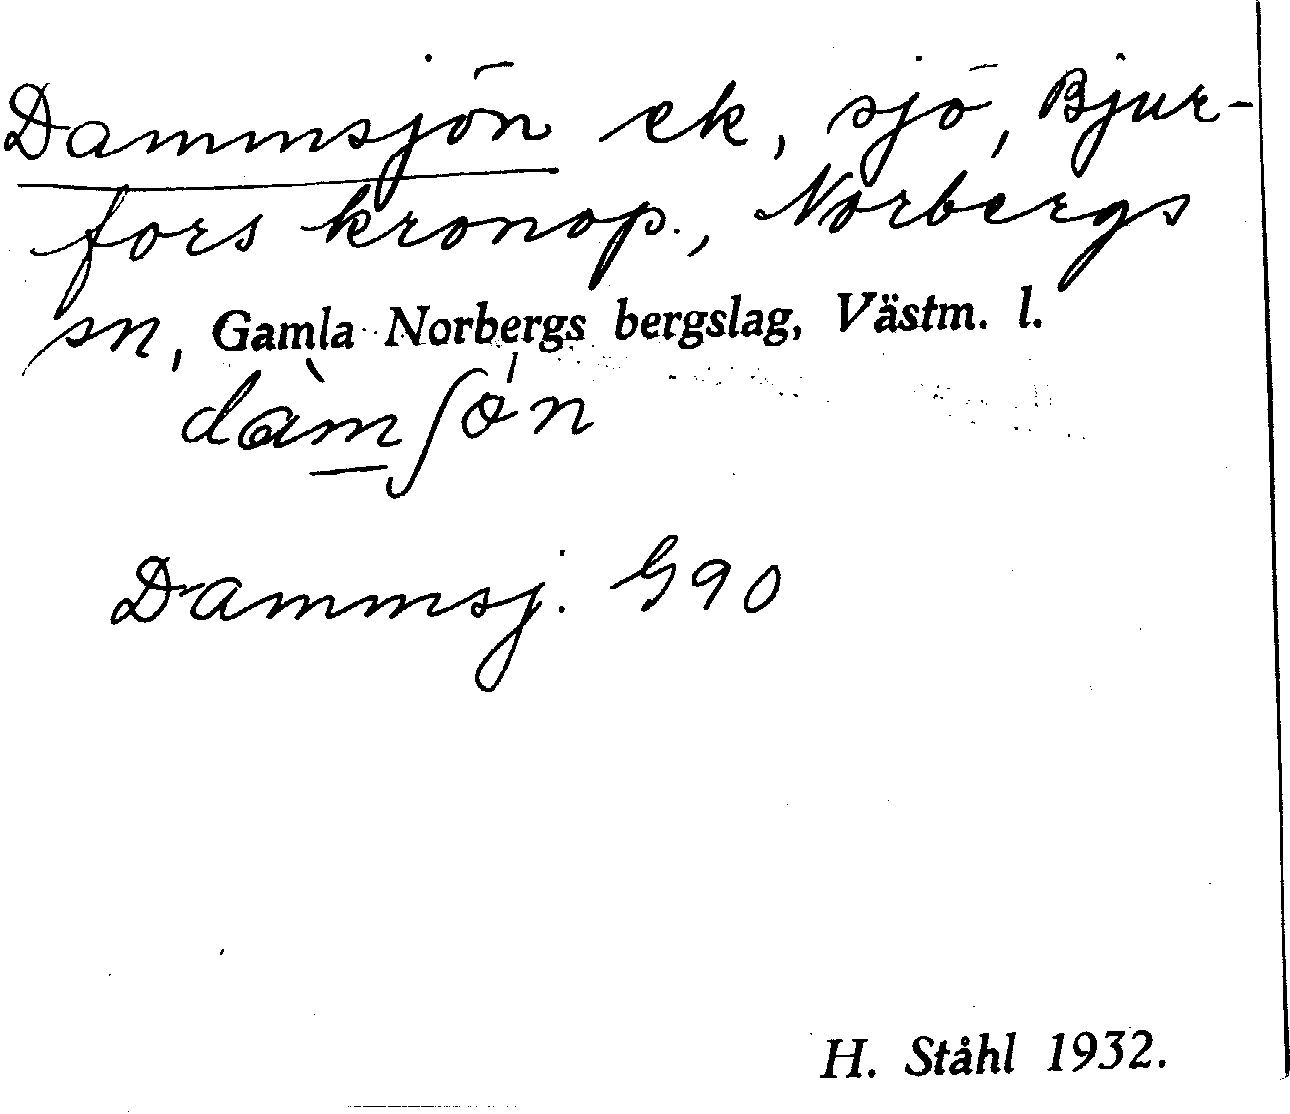 Dammsjön ek, sjö, Bjur-
fors kronop., Norbergs
sn, Gamla Norbergs bergslag, Västm. l.
dàm̲ʃǿn
Dammsj. G90
H. Ståhl 1932.